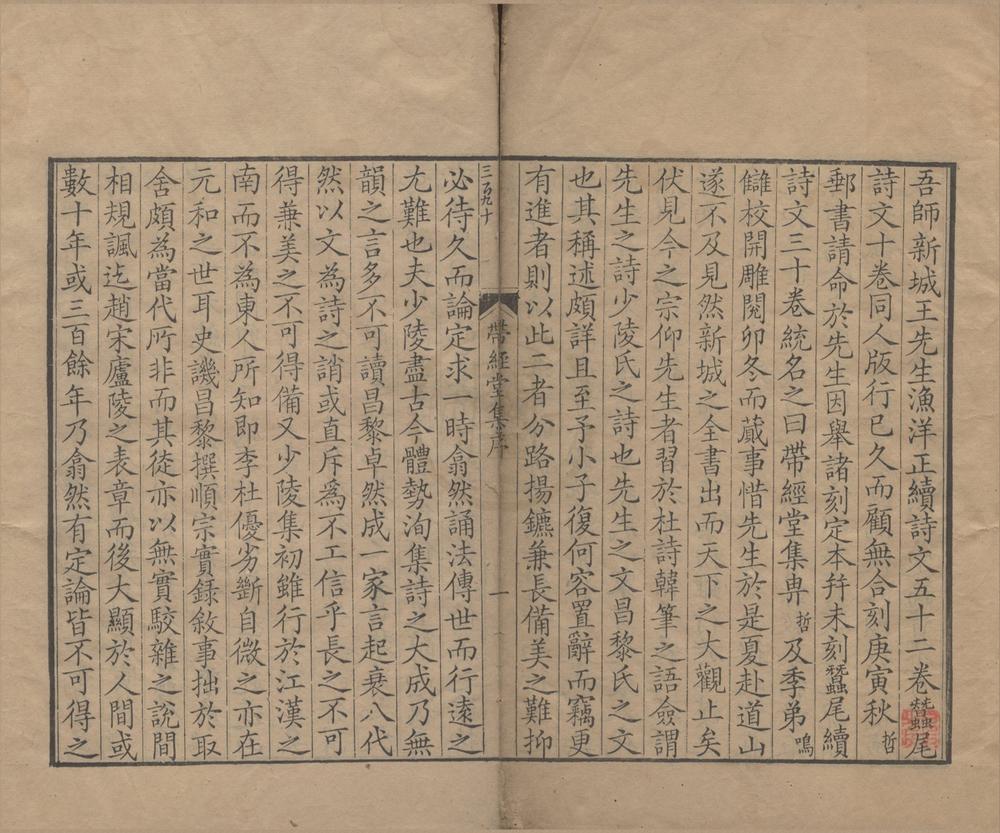 吾師新城王先生漁洋正續詩文五十二卷蠶尾
詩文十卷同人版行已久而顧無合刻庚寅秋哲
郵書請命於先生因舉諸刻定本幷未刻蠶尾續
詩文三十卷統名之曰帶經堂集畀哲及季弟鳴
讎校開雕閱卯冬而蕆事惜先生於是夏赴道山
遂不及見然新城之全書出而天下之大觀止矣
伏見今之宗仰先生者習於杜詩韓筆之語僉謂
先生之詩少陵氏之詩也先生之文昌黎氏之文
也其稱述頗詳且至予小子復何容置辭而竊更
有進者則以此二者分路揚鑣兼長備美之難抑
帶經堂集序
一
必待久而論定求一時翕然誦法傳世而行遠之
尤難也夫少陵盡古今體勢洵集詩之大成乃無
韻之言多不可讀昌黎卓然成一家言起衰八代
然以文為詩之誚或直斥爲不工信乎長之不可
得兼美之不可得備又少陵集初雖行於江漢之
南而不為東人所知即李杜優劣斷自微之亦在
元和之世耳史譏昌黎撰順宗實録敘事拙於取
舍頗為當代所非而其徒亦以無實駮雜之說間
相規諷迄趙宋廬陵之表章而後大顯於人間或
數十年或三百餘年乃翕然有定論皆不可得之